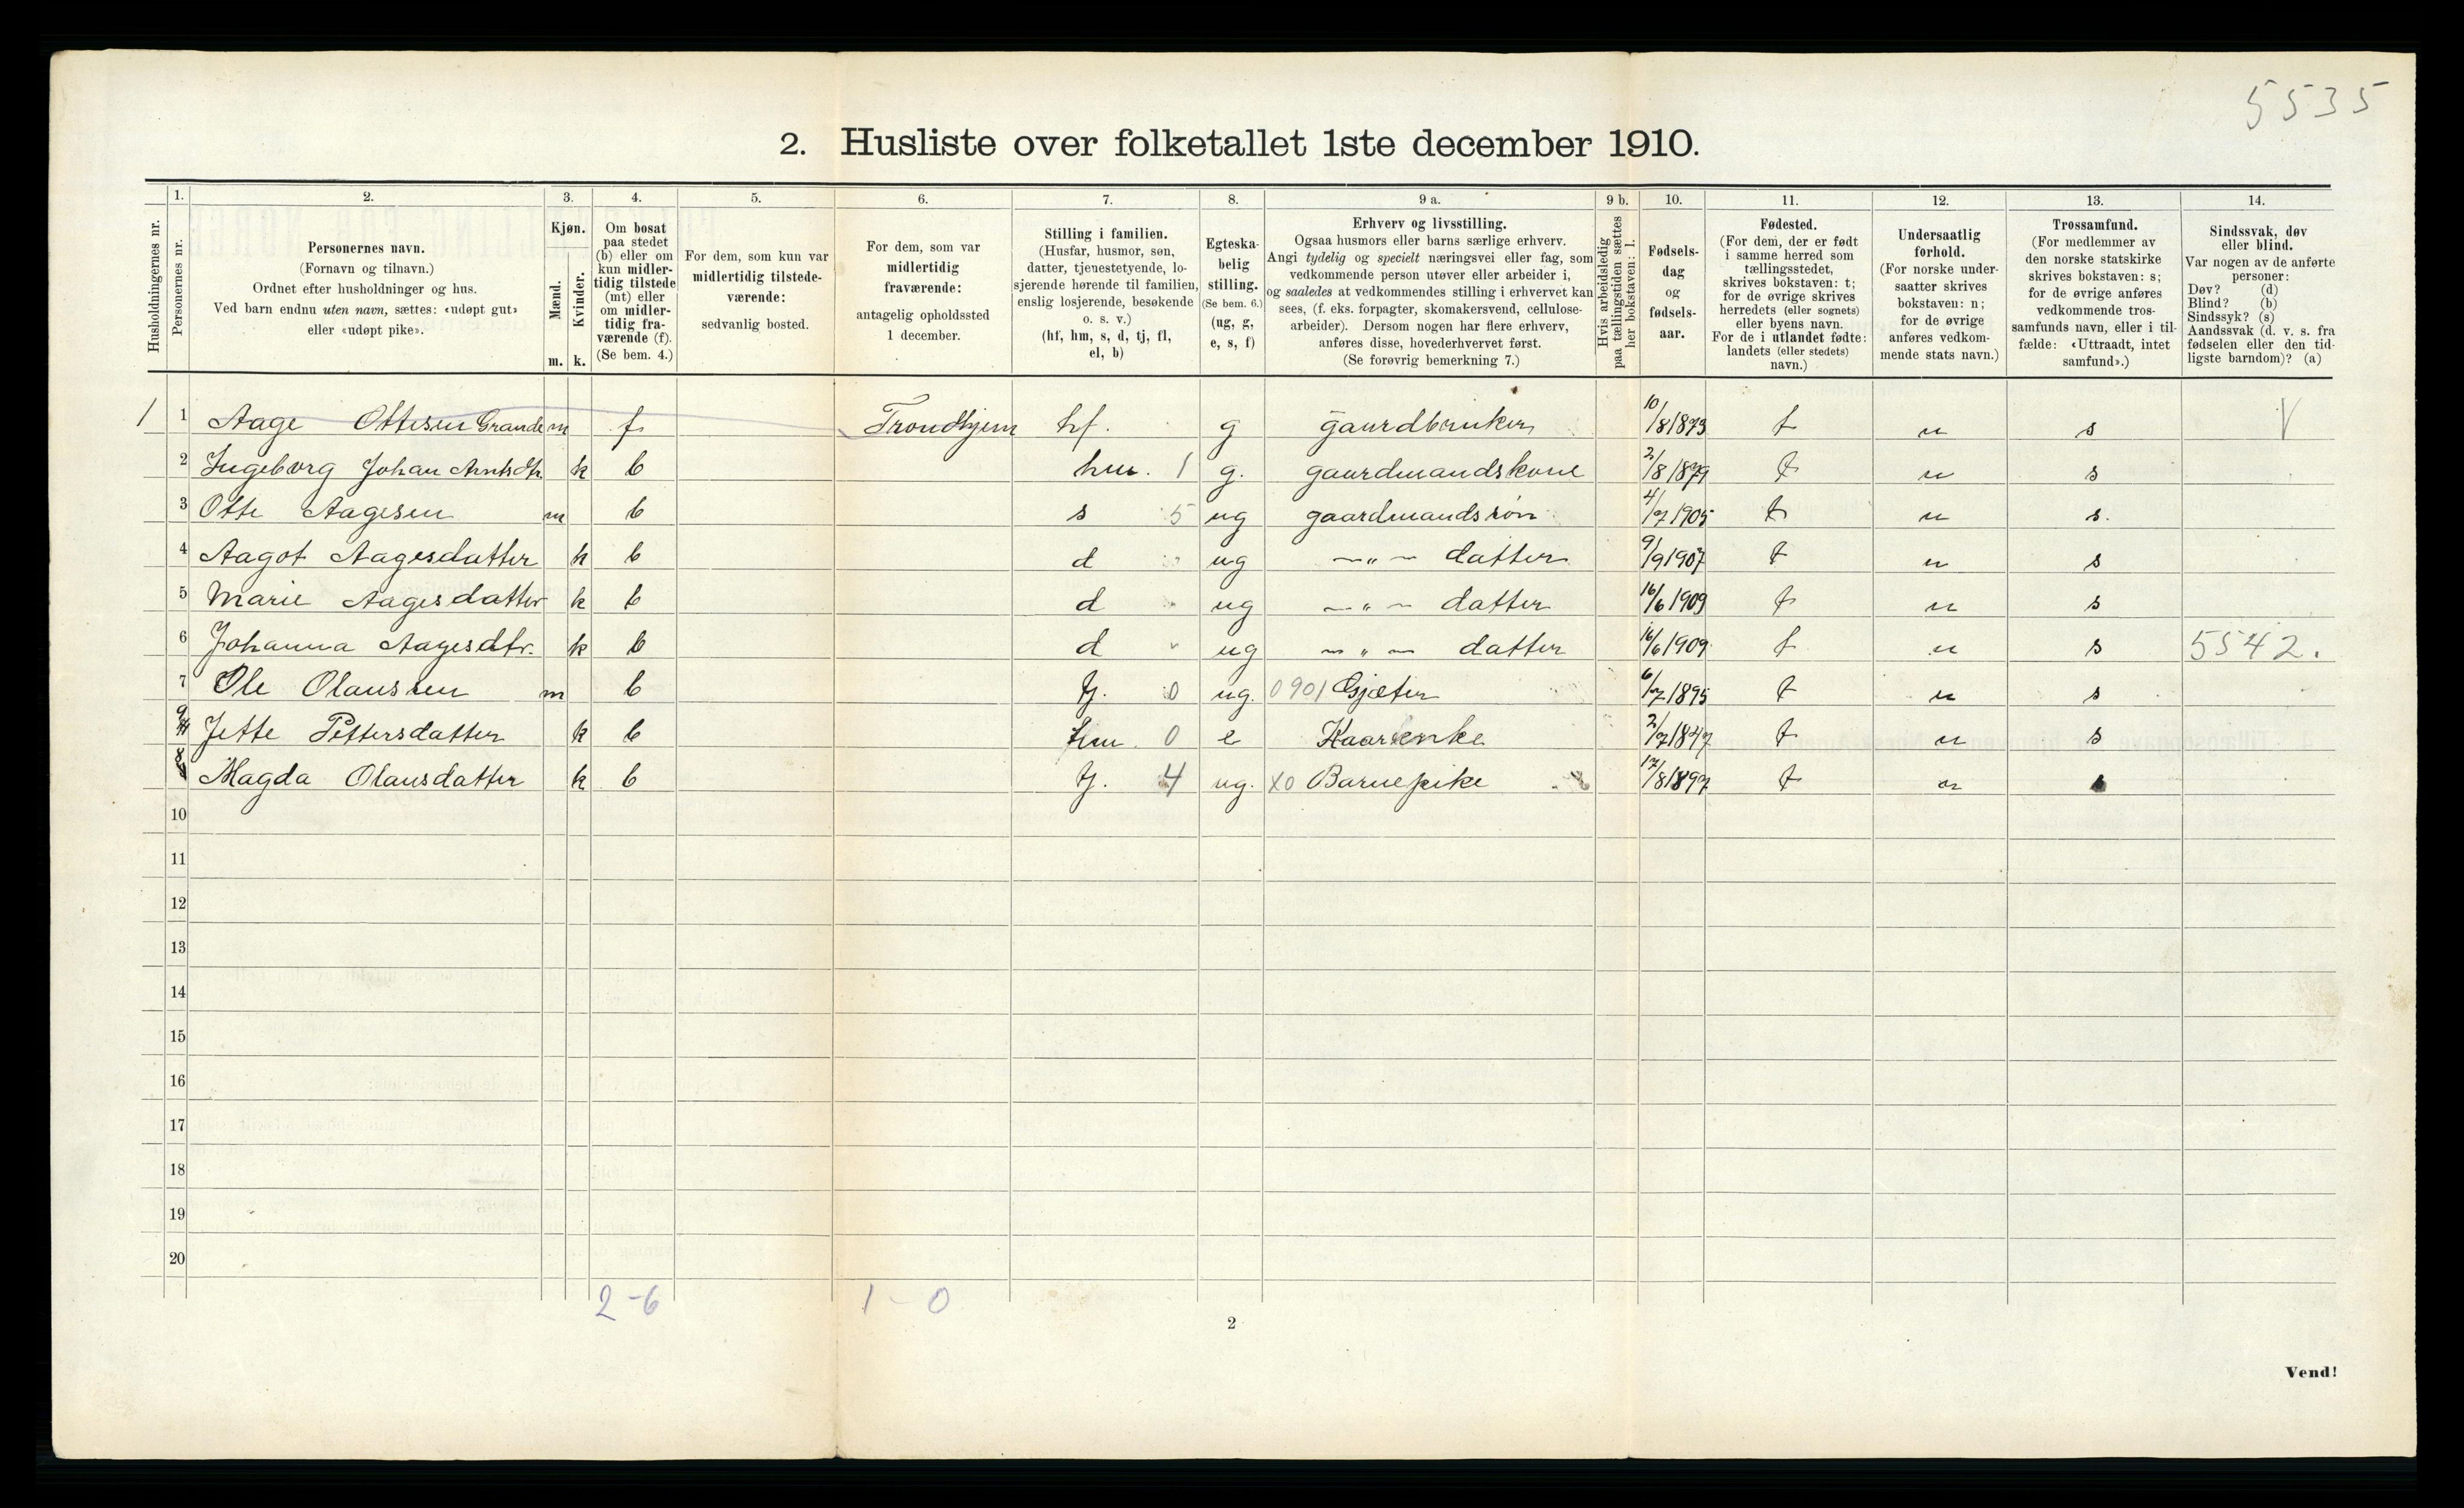 5535
2. Husliste over folketallet 1ste december 1910.
Husholdningernes nr.
1. Personernes nr.
2. Personernes navn.
(Fornavn og tilnavn.)
Ordnet efter husholdninger og hus.
Ved barn endnu uten navn, sættes: «udøpt gut»
eller «udøpt pike».
3. Kjøn.
Mænd. m.
Kvinder. k.
4. Om bosat
paa stedet
(b) eller om
kun midler-
tidig tilstede
(mt) eller
om midler-
tidig fra-
værende (f).
(Se bem. 4.)
5. For dem, som kun var
midlertidig tilstede-
værende:
sedvanlig bosted.
6. For dem, som var
midlertidig
fraværende:
antagelig opholdssted
1 december.
7. Stilling i familien.
(Husfar, husmor, søn,
datter, tjenestetyende, lo-
sjerende hørende til familien,
enslig losjerende, besøkende
o. s. v.)
(hf, hm, s, d, tj, fl,
el, b)
8. Egteska-
belig
stilling.
(Se bem. 6.)
(ug, g,
e, s, f)
9 a. Erhverv og livsstilling.
Ogsaa husmors eller barns særlige erhverv.
Angi tydelig og specielt næringsvei eller fag, som
vedkommende person utøver eller arbeider i,
og saaledes at vedkommendes stilling i erhvervet kan
sees, (f. eks. forpagter, skomakersvend, cellulose-
arbeider). Dersom nogen har flere erhverv,
anføres disse, hovederhvervet først.
(Se forøvrig bemerkning 7.)
9 b. Hvis arbeidsledig
paa tællingstiden sættes
her bokstaven: l.
10. Fødsels-
dag
og
fødsels-
aar.
11. Fødested.
(For dem, der er født
i samme herred som
tællingsstedet,
skrives bokstaven: t;
for de øvrige skrives
herredets (eller sognets)
eller byens navn.
For de i utlandet fødte:
landets (eller stedets)
navn.)
12. Undersaatlig
forhold.
(For norske under-
saatter skrives
bokstaven: n;
for de øvrige
anføres vedkom-
mende stats navn.)
13. Trossamfund.
(For medlemmer av
den norske statskirke
skrives bokstaven: s;
for de øvrige anføres
vedkommende tros-
samfunds navn, eller i til-
fælde: «Uttraadt, intet
samfund».)
14. Sindssvak, døv
eller blind.
Var nogen av de anførte
personer:
Døv? (d)
Blind? (b)
Sindssyk? (s)
Aandssvak (d. v. s. fra
fødselen eller den tid-
ligste barndom)? (a)
1 1 Aage Ottesen Grande m f Trondhjem hf. g gaardbruker 10/8 1873 t n s V
2 Ingeborg Johan Arntsdtr. k b hm. 1 g. gaardmandskone 2/8 1879 t n s
3 Otte Aagesen m b s 5 ug gaardmandssøn 4/7 1905 t n s.
4 Aagot Aagesdatter k b d " ug —„— datter 9/9 1907 t n s
5 Marie Aagesdatter k b d " ug —„— datter 16/6 1909 t n s
6 Johanna Aagesdtr. k b d " ug —„— datter 16/6 1909 t n s 5542.
7 Ole Olaussen m b tj. 0 ug. 0901 Gjæter 6/7 1895 t n s
9 Jette Pettersdatter k b hm. 0 e Kaarenke 2/7 1847 t n s
8 Magda Olausdatter k b tj. 4 ug. X0 Barnepike 17/8 1897 t n s
10
11
12
13
14
15
16
17
18
19
20
2-6 1-0
2
Vend!